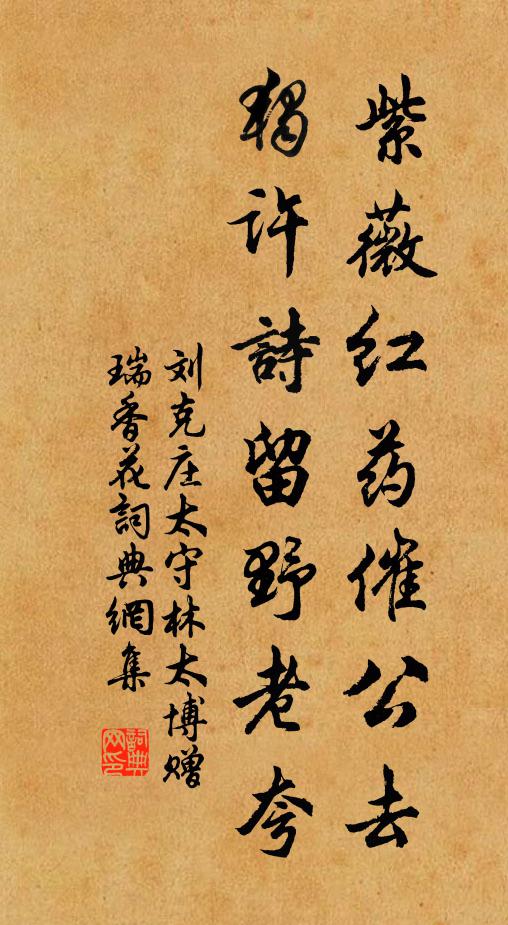 紫薇红药催公去
独许詩留野老夸
刘克庄太守林太博赠
瑞香花詞典網集
詞典网印